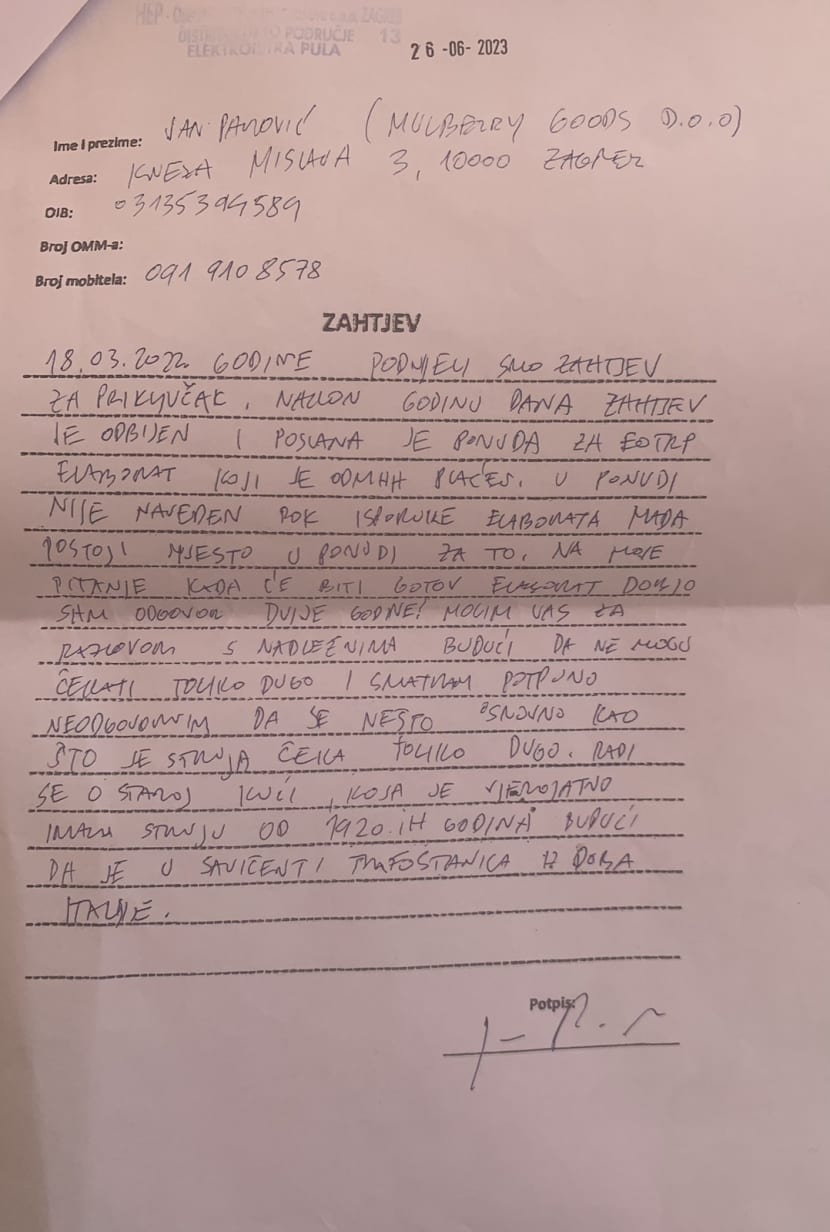 HEP - d.o.o. ZAGREB
PODRUČJE 13
ELEKTROISTRA PULA
26-06-2023
Ime i prezime: JAN PAVLOVIĆ (MULBERRY GOODS D.O.O)
Adresa: KNEZA MISLAVA 3, 10000 ZAGREB
OIB: 03135394589
Broj OMM-a:
Broj mobitela: 091 910 8578
ZAHTJEV
18.03.2022. GODINE PODNJELI SMO ZAHTJEV
ZA PRIKLJUČAK. NAKON GODINU DANA ZAHTJEV
JE ODBIJEN I POSLANA JE PONUDA ZA EOTRP
ELABORAT KOJI JE ODMAH PLAĆEN. U PONUDI
NIJE NAVEDEN ROK ISPORUKE ELABORATA MADA
POSTOJI MJESTO U PONUDI ZA TO. NA MOJE
PITANJE KADA ĆE BITI GOTOV ELABORAT DOBIO
SAM ODGOVOR DVIJE GODINE! MOLIM VAS ZA
RAZGOVOR S NADLEŽNIMA BUDUĆI DA NE MOGU
ČEKATI TOLIKO DUGO I SMATRAM POTPUNO
NEODGOVORNIM DA SE NEŠTO OSNOVNO KAO
ŠTO JE STRUJA ČEKA TOLIKO DUGO. RADI
SE O STAROJ KUĆI, KOJA JE VJEROJATNO
IMALA STRUJU OD 1920.IH GODINA BUDUĆI
DA JE U SAVIČENTI TRAFOSTANICA IZ DOBA
ITALIJE.
Potpis: